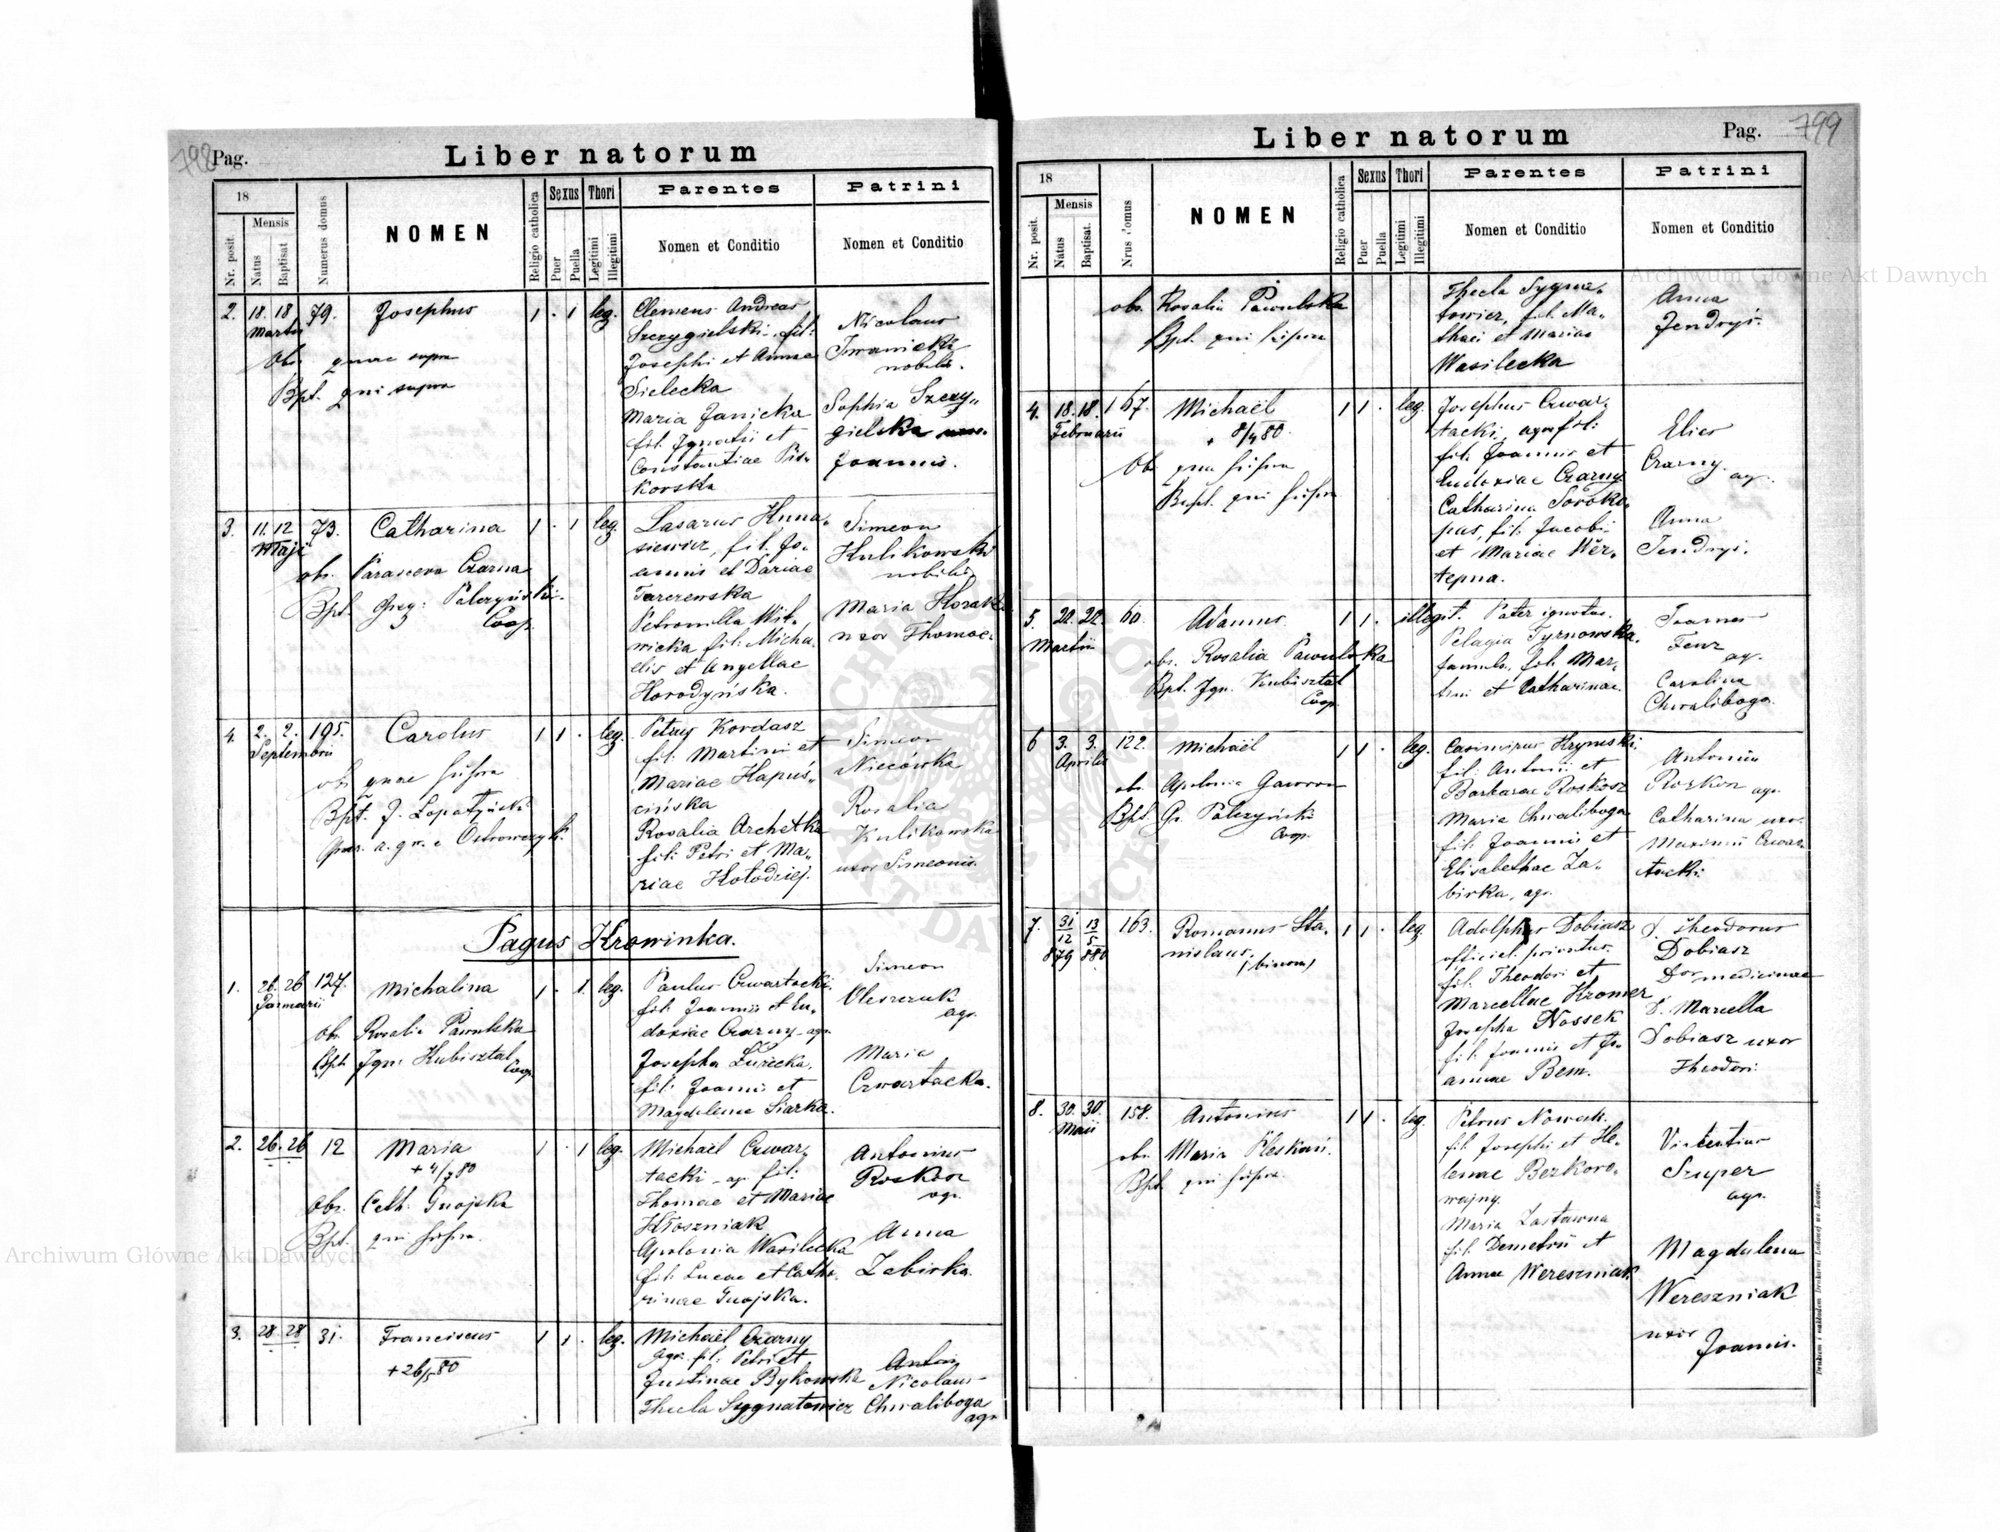 798
Pag.
Liber natorum
18
Mensis
Nr. posit.
Natus
Baptisat
Numerus domus
NOMEN
Religio catholica
Sexus
Puer
Puella
Thori
Legitimi
Illegitimi
Parentes
Nomen et Conditio
Patrini
Nomen et Conditio
2. 18. 18 79. Josephus 1 . 1 leg.
Martii
Obs. quae supra
Bpt. qui supra
Clemens Andreas
Szczygielski fil:
Josephi et Annae
Sielecka
Maria Janicka
fil. Ignatii et
Constantiae Pis-
korska
Nicolaus
Iwanicki
nobilis.
Sophia Szczy„
gielska
Joannis.
3. 11. 12 73. Catharina 1 . 1 leg.
Maji
obs. Parasceva Czarna
Bpt. Greg: Palczyński
Coop.
Lasarus Huna-
siewicz, fil. Jo-
annis et Dariae
Tarczewska
Petronella Mil-
nicka fil: Micha-
elis et Angellae
Horodyńska.
Simeon
Kulikowski
nobilis
Maria Kozak
uxor Thomae.
4. 2. 2. 195. Carolus 1 1 . leg.
Septembris
ob. quae supra
Bpt. J. Łopatyński
a. gr. c Ostrowczyk.
Petrus Kordasz
fil: Martini et
Mariae Hapuś„
cińska
Rosalia Archetka
fil: Petri et Ma„
riae Hołodziej.
Simeon
Niecówka
Rosalia
Kulikowska
uxor Simeonis.
Pagus Krowinka.
1. 26. 26 124. Michalina 1 . 1. leg.
Januarii
ob. Rosalia Pawulska
Bpt. Ign: Kubisztal
Coop.
Paulus Czwartacki
fil: Joannis et Eu-
doxiae Czarny - agr.
Josepha Zurecka
fil: Joannis et
Magdalenae Siarka.
Simeon
Oleszczuk
agr.
Maria
Czwartacka.
2. 26. 26 12 Maria 1 . 1 leg.
+ 4/7 80
Obs. Cath. Gnojska
Bpt. qui supra.
Michaël Czwar-
tacki - agr fil:
Thomae et Mariae
Kłoszniak
Apolonia Wasilecka
fil: Lucae et Catha-
rinae Gnojska.
Antonius
Roskosz
agr.
Anna
Zabirka.
3. 28. 28 31. Franciscus 1 1 . leg.
+ 26/5 80
Michaël Czarny
agr. fil: Petri et
Justinae Bykowska
Thecla Sygnatowicz
Anton
Nicolaus
Chwaliboga
agr.
Liber natorum
Pag.
799
18
Mensis
Nr. posit.
Natus
Baptisat.
Nrus domus
NOMEN
Religio catholica
Sexus
Puer
Puella
Thori
Legitimi
Illegitimi
Parentes
Nomen et Conditio
Patrini
Nomen et Conditio
obs. Rosalia Pawulska
Bpt. qui supra
Thecla Sygna-
towicz, fil. Ma-
thaei et Mariae
Wasilecka
Anna
Jendryś.
4. 18. 18. 167. Michaël 1 1 . leg.
Februarii
+ 8/4 80.
Ob. quae supra
Bapt. qui supra
Josephus Czwar-
tacki, agr fil:
fil: Joannis et
Eudoxiae Czarny
Catharina Soroko-
pas, fil. Jacobi
et Mariae Wer-
tepna.
Elias
Czarny
agr.
Anna
Jendryś.
5. 22. 22. 60. Adamus 1 1 . illegit.
Martii
obs. Rosalia Pawulska
Bpt. Ign. Kubisztal
Coop.
Pater ignotus.
Pelagia Tyrnowska
famula, fil: Mar-
tini et Catharinae.
Joannes
Fenz
ag.
Carolina
Chwaliboga.
6 3. 3. 122. Michaël 1 1 . leg.
Aprilis
ob. Apolonia Gaworon
Bpt. Gr. Palczyński
Coop.
Casimirus Krynski
fil: Antonii et
Barbarae Roskosz
Maria Chwaliboga
fil: Joannis et
Elisabethae Za„
birka, agr.
Antonius
Roskosz agr.
Catharina uxor
Maximi Czwar-
tacki.
7. 31/12 879 13/5 880 163. Romanus Sta- 1 1 . leg.
nislaus.
(binom)
Adolphus Dobiasz
offic. et privatus
fil. Theodori et
Marcellae Kromer
Josepha Nossek
fil: Joannis et Jo-
annae Bem.
D. Theodorus
Dobiasz
Dor medicinae
D. Marcella
Dobiasz uxor
Theodori.
8. 30. 30. 158. Antonius 1 1 . leg.
Maii
obs. Maria Pleskań.
Bpt. qui supra.
Petrus Nowak
fil Josephi et He-
lenae Bezkoro-
wajny.
Maria Zastawna
fil: Demetrii et
Annae Wereszniak
Vincentius
Szuper
agr.
Magdalena
Wereszniak
uxor
Joannis.
Drukiem i nakładem Drukarni Ludowej we Lwowie.
Archiwum Główne Akt Dawnych
Archiwum Główne Akt Dawnych
ARCHIWUM GŁÓWNE AKT DAWNYCH